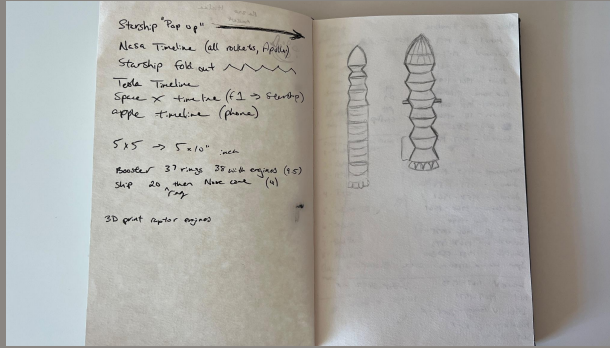 Starship "Pop up"
Nasa Timeline (all rockets, Apollo)
Starship fold out
Tesla Timeline
Space X timeline (f1 → Starship)
apple timeline (phone)
5x5 → 5x10" inch
Booster 37 rings 38 with engines (9.5)
Ship 20 ring then Nose cone (4)
3D print raptor engines